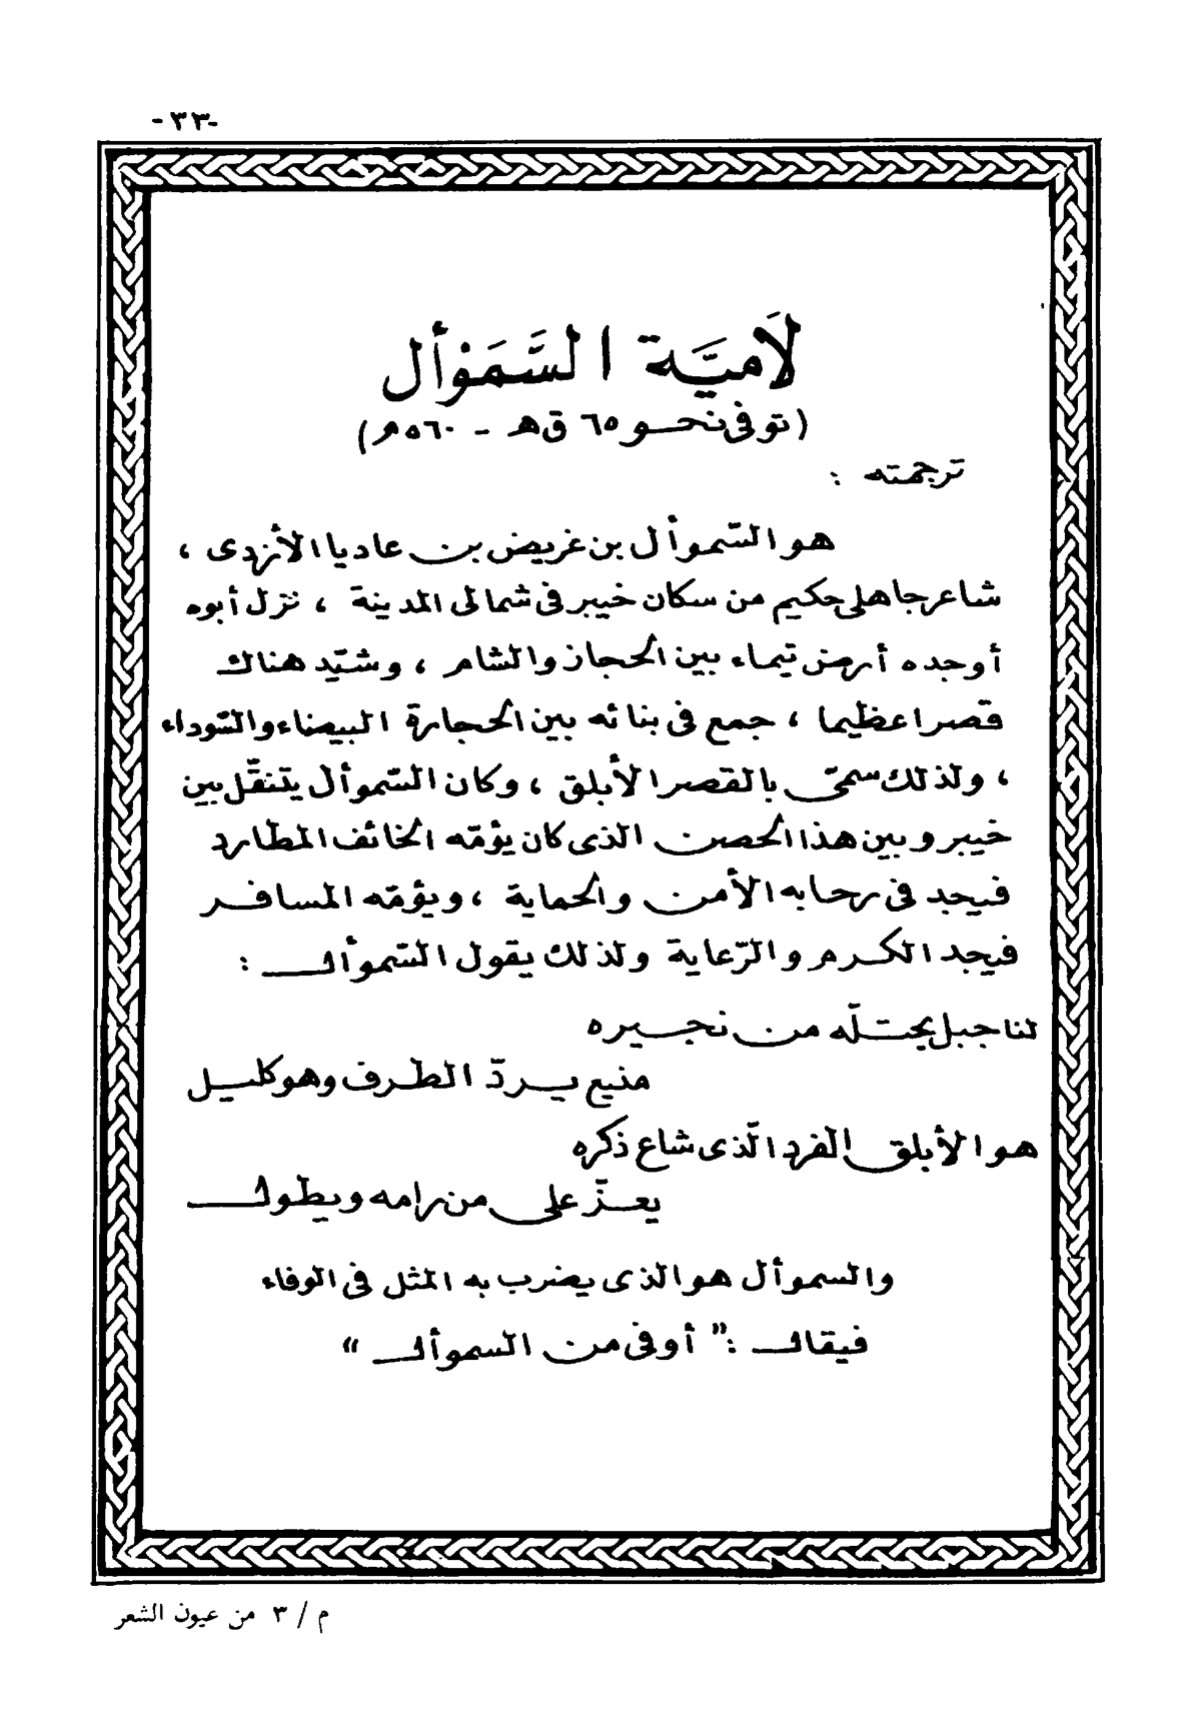 -٣٣-
لَاميَّة السَّمَوْأل
(توفى نحو ٦٥ ق هـ - ٥٦٠ م)
ترجمته :
هو السّموأل بن غريض بن عاديا الأزدى ،
شاعر جاهلى حكيم من سكان خيبر فى شمالى المدينة ، نزل أبوه
أوجده أرض تيماء بين الحجاز والشام ، وشيّد هناك
قصرا عظيما ، جمع فى بنائه بين الحجارة البيضاء والسّوداء
، ولذلك سمّى بالقصر الأبلق ، وكان السّموأل يتنقّل بين
خيبر وبين هذا الحصن الذى كان يؤمّه الخائف المطارد
فيجد فى رحابه الأمن والحماية ، ويؤمّه المسافر
فيجد الكرم والرّعاية ولذلك يقول السّموأل :
لنا جبل يحتلّه من نجيره
منيع يردّ الطرف وهو كليل
هو الأبلق الفرد الّذى شاع ذكره
يعزّ على من رامه ويطول
والسموأل هو الذى يضرب به المثل فى الوفاء
فيقال : " أوفى من السموأل "
م / ٣ من عيون الشعر